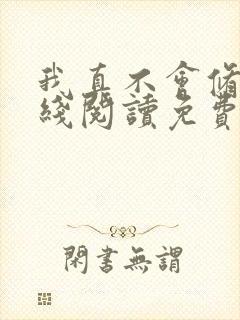 我真不會脩
綫閱讀免費
閑書無謂